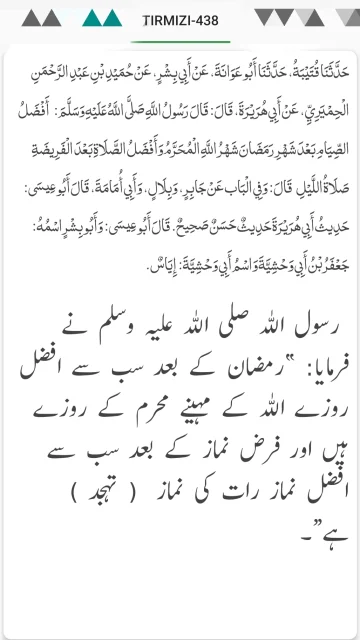 TIRMIZI-438
حَدَّثَنَا قُتَيْبَةُ، حَدَّثَنَا أَبُو عَوَانَةَ، عَنْ أَبِي بِشْرٍ، عَنْ حُمَيْدِ بْنِ عَبْدِ الرَّحْمَنِ
الْحِمْيَرِيِّ، عَنْ أَبِي هُرَيْرَةَ، قَالَ: قَالَ رَسُولُ اللَّهِ صَلَّى اللَّهُ عَلَيْهِ وَسَلَّمَ: أَفْضَلُ
الصِّيَامِ بَعْدَ شَهْرِ رَمَضَانَ شَهْرُ اللَّهِ الْمُحَرَّمُ وَأَفْضَلُ الصَّلَاةِ بَعْدَ الْفَرِيضَةِ
صَلَاةُ اللَّيْلِ قَالَ: وَفِي الْبَاب عَنْ جَابِرٍ، وَبِلَالٍ، وَأَبِي أُمَامَةَ، قَالَ أَبُو عِيسَى:
حَدِيثُ أَبِي هُرَيْرَةَ حَدِيثٌ حَسَنٌ صَحِيحٌ، قَالَ أَبُو عِيسَى: وَأَبُو بِشْرٍ اسْمُهُ:
جَعْفَرُ بْنُ أَبِي وَحْشِيَّةَ وَاسْمُ أَبِي وَحْشِيَّةَ: إِيَاسٌ.
رسول اللہ صلی اللہ علیہ وسلم نے
فرمایا: ”رمضان کے بعد سب سے افضل
روزے اللہ کے مہینے محرم کے روزے
ہیں اور فرض نماز کے بعد سب سے
افضل نماز رات کی نماز ( تہجد )
ہے“۔